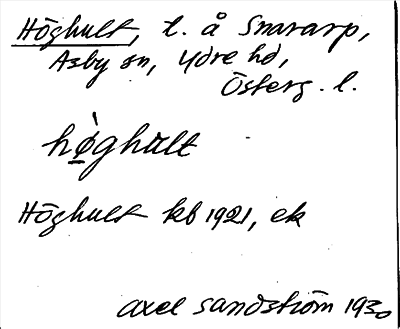 Höghult, t. å Snararp,
Asby sn, Ydre hd,
Österg. l.
hø̀ghult
Höghult kb 1921, ek
Axel Sandström 1930